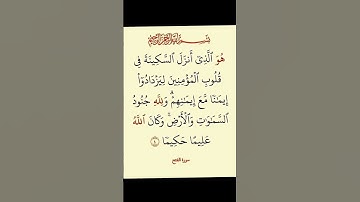 بسم الله الرحمن الرحيم
هُوَ ٱلَّذِىٓ أَنزَلَ ٱلسَّكِينَةَ فِى
قُلُوبِ ٱلْمُؤْمِنِينَ لِيَزْدَادُوٓا۟
إِيمَٰنًا مَّعَ إِيمَٰنِهِمْ ۗ وَلِلَّهِ جُنُودُ
ٱلسَّمَٰوَٰتِ وَٱلْأَرْضِ ۚ وَكَانَ ٱللَّهُ
عَلِيمًا حَكِيمًا ٤
سورة الفتح